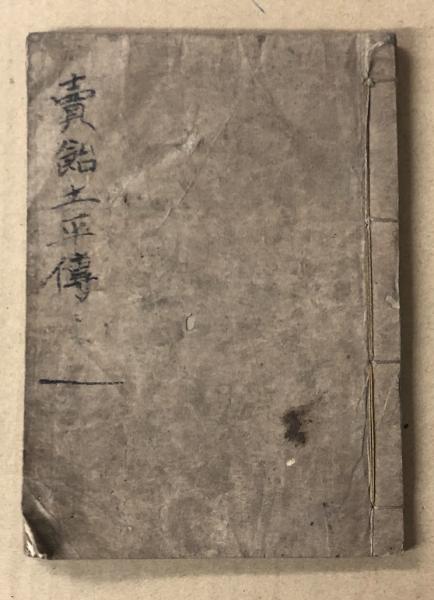 賣飴土平傳